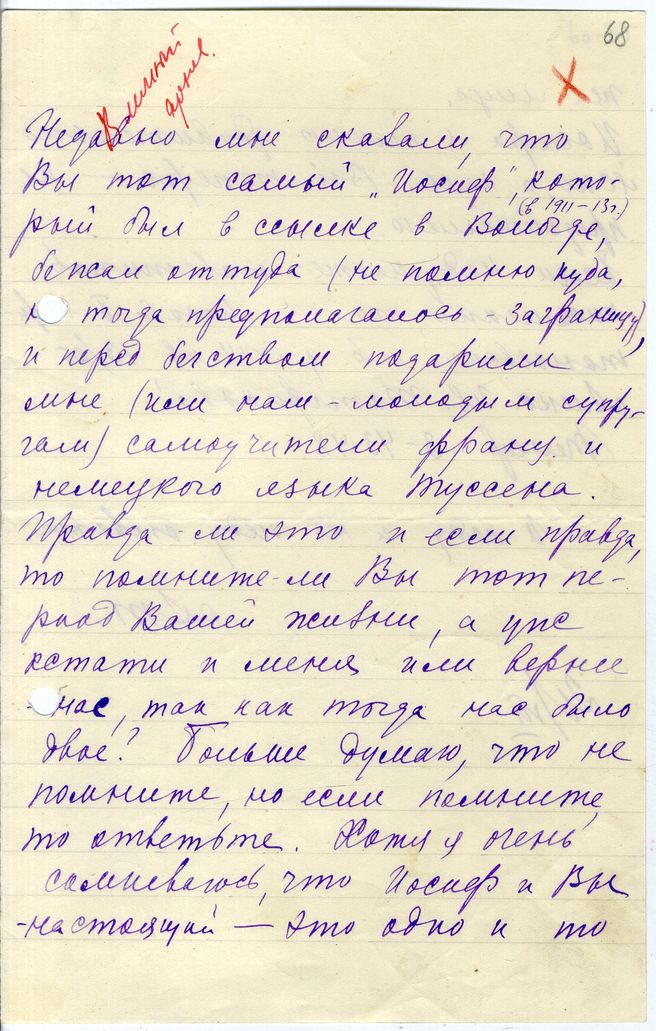 68
Личный
архив.
Недавно мне сказали, что
Вы тот самый „Иосиф", кото-
(в 1911–13 г.)
рый был в ссылке в Вологде,
бежал оттуда (не помню куда,
но тогда предполагалось – заграницу),
и перед бегством подарили
мне (или нам – молодым супру-
гам) самоучители франц. и
немецкого языка Туссена.
Правда ли это и если правда,
то помните-ли Вы тот пе-
риод Вашей жизни, а уже
кстати и меня или вернее
- нас, так как тогда нас было
двое? Больше думаю, что не
помните, но если помните,
то ответьте. Хотя я очень
сомневаюсь, что Иосиф и Вы
-настоящий — это одно и то